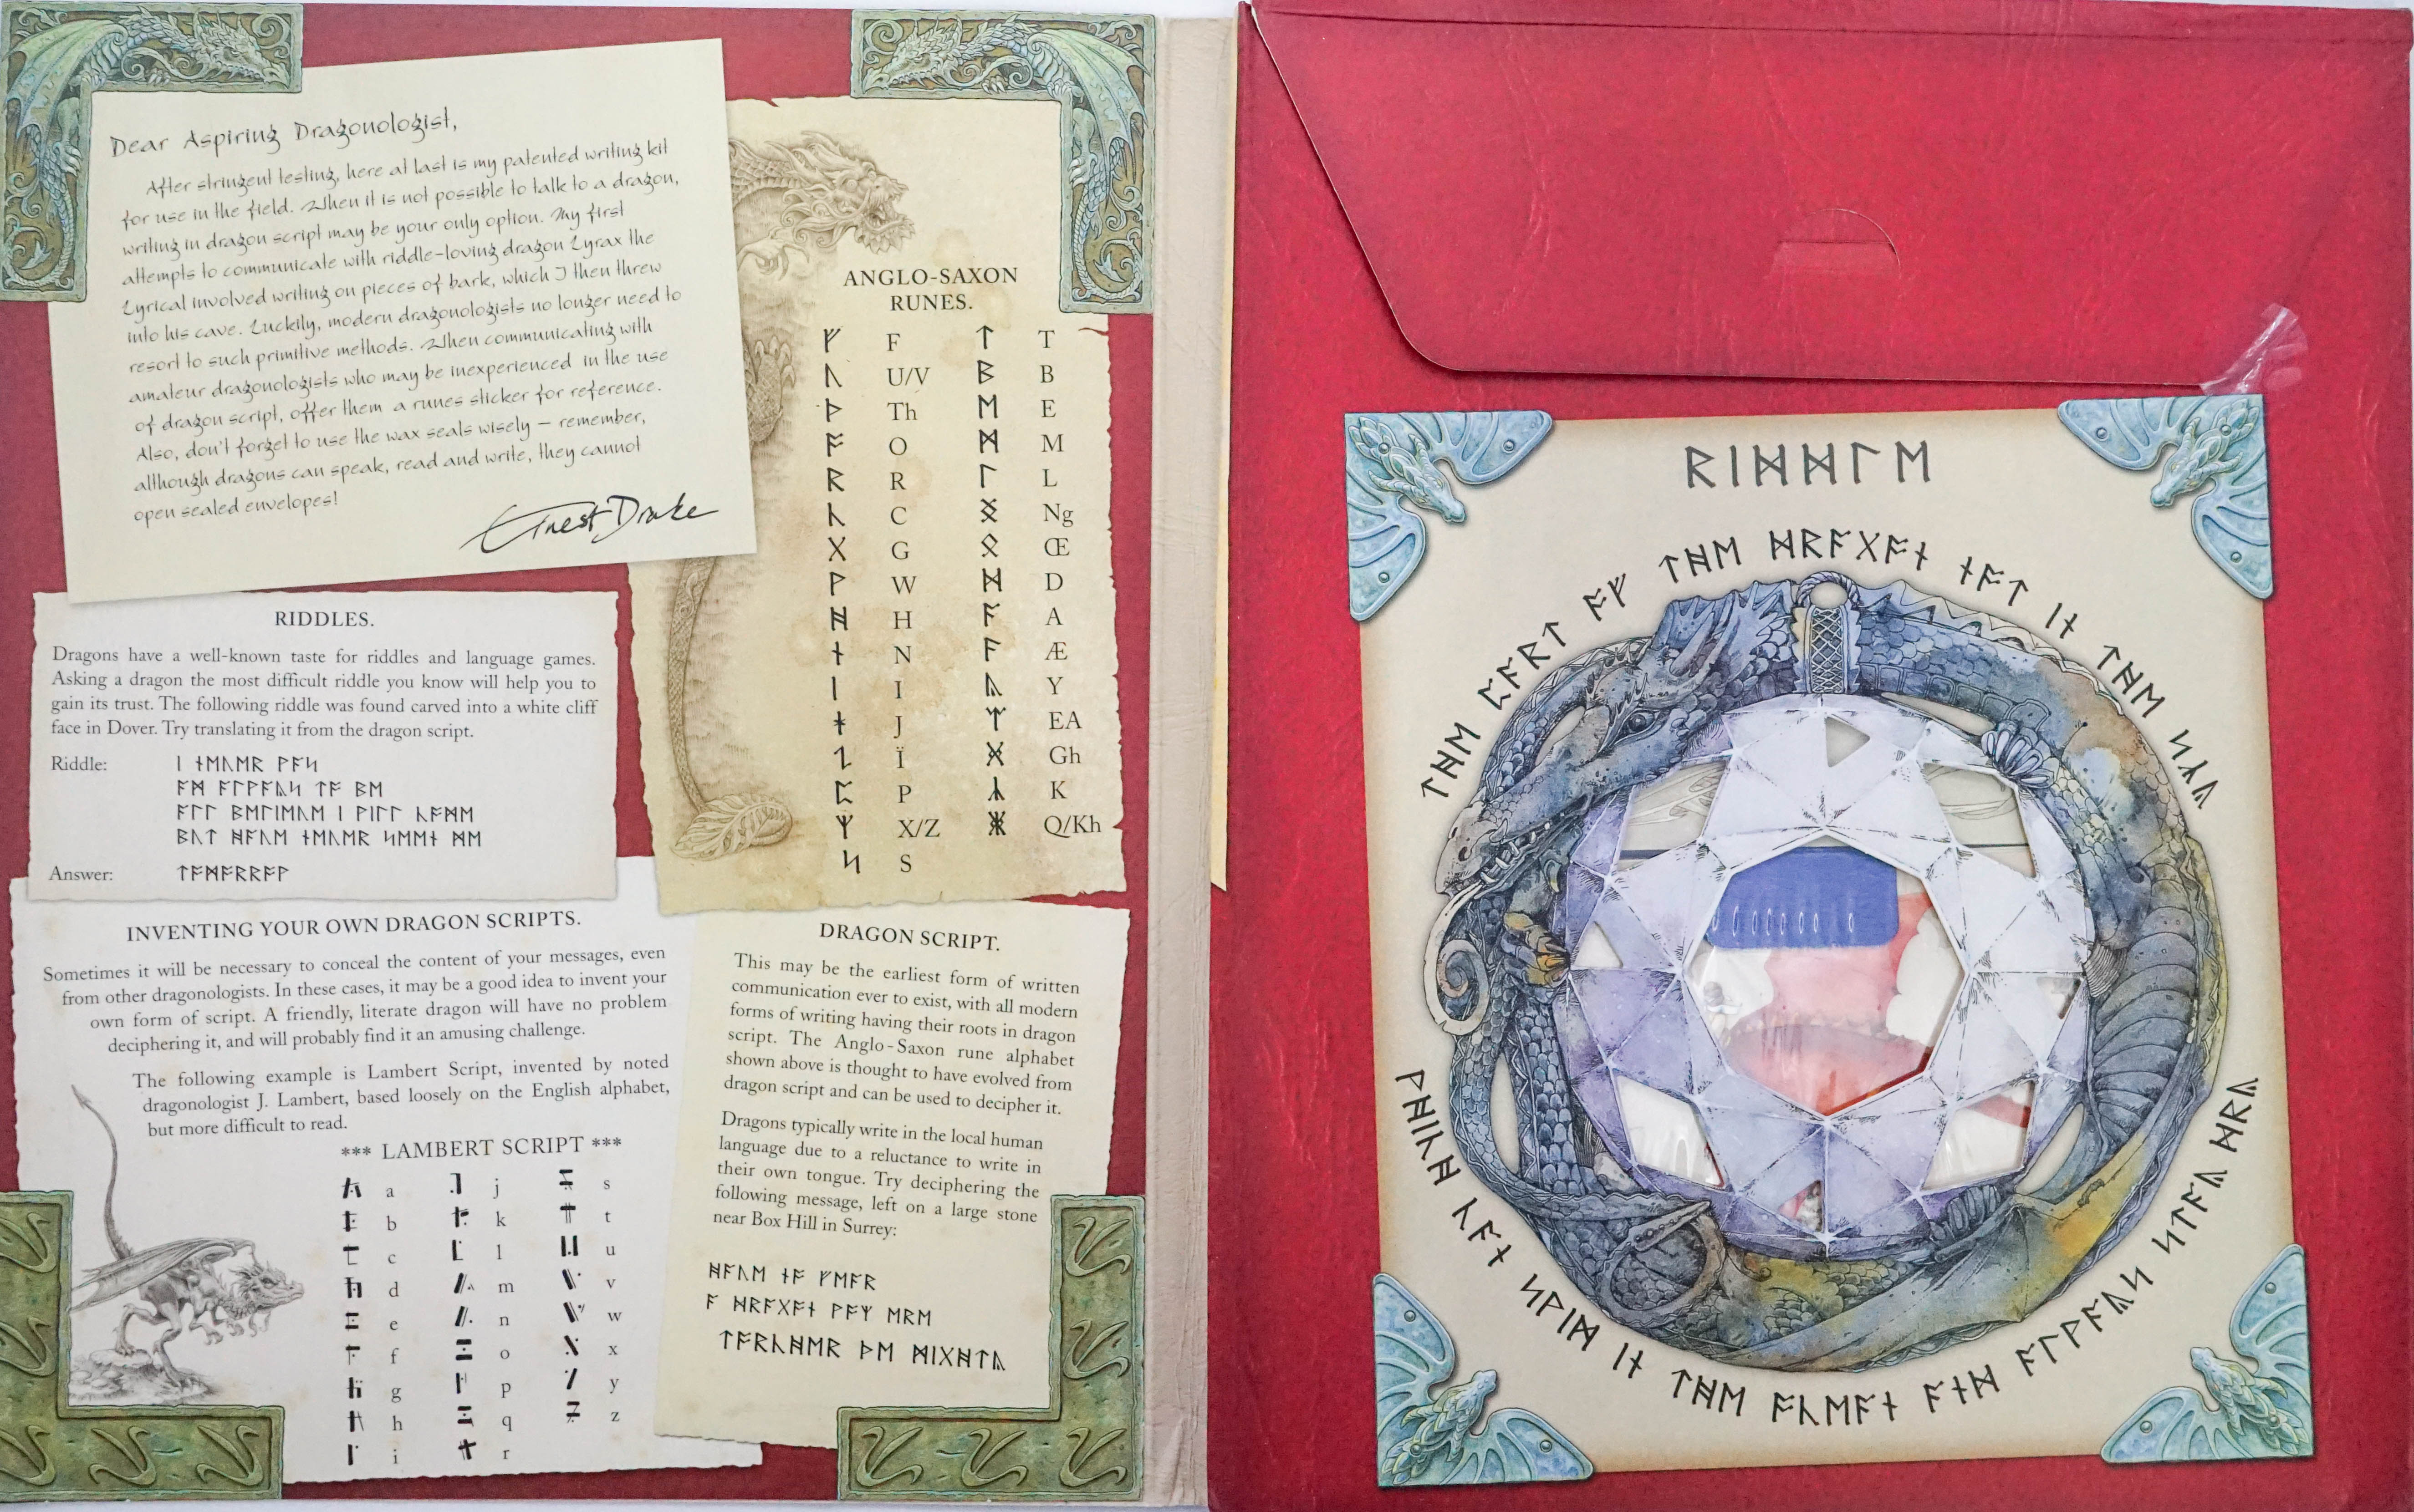 Dear Aspiring Dragonologist,
After stringent testing, here at last is my patented writing kit
for use in the field. When it is not possible to talk to a dragon,
writing in dragon script may be your only option. My first
attempts to communicate with riddle-loving dragon Lyrax the
Lyrical involved writing on pieces of bark, which I then threw
into his cave. Luckily, modern dragonologists no longer need to
resort to such primitive methods. When communicating with
amateur dragonologists who may be inexperienced in the use
of dragon script, offer them a runes sticker for reference.
Also, don't forget to use the wax seals wisely – remember,
although dragons can speak, read and write, they cannot
open sealed envelopes!
Ernest Drake
ANGLO-SAXON
RUNES.
ᚠ F ᛏ T
ᚢ U/V ᛒ B
ᚦ Th ᛖ E
ᚩ O ᛗ M
ᚱ R ᛚ L
ᚳ C ᛝ Ng
ᚷ G ᛟ Œ
ᚹ W ᛞ D
ᚻ H ᚪ A
ᚾ N ᚫ Æ
ᛁ I ᚣ Y
ᛡ J ᛠ EA
ᛇ Ï ᚸ Gh
ᛈ P ᛣ K
ᛉ X/Z ᛤ Q/Kh
ᛋ S
RIDDLES.
Dragons have a well-known taste for riddles and language games.
Asking a dragon the most difficult riddle you know will help you to
gain its trust. The following riddle was found carved into a white cliff
face in Dover. Try translating it from the dragon script.
Riddle: ᛁ ᚾᛖᚢᛖᚱ ᚹᚪᛋ
ᚪᛗ ᚪᛚᚹᚪᚣᛋ ᛏᚩ ᛒᛖ
ᚪᛚᛚ ᛒᛖᛚᛁᛖᚢᛖ ᛁ ᚹᛁᛚᛚ ᚳᚩᛗᛖ
ᛒᚢᛏ ᚻᚪᚢᛖ ᚾᛖᚢᛖᚱ ᛋᛖᛖᚾ ᛗᛖ
Answer: ᛏᚩᛗᚩᚱᚱᚩᚹ
INVENTING YOUR OWN DRAGON SCRIPTS.
Sometimes it will be necessary to conceal the content of your messages, even
from other dragonologists. In these cases, it may be a good idea to invent your
own form of script. A friendly, literate dragon will have no problem
deciphering it, and will probably find it an amusing challenge.
The following example is Lambert Script, invented by noted
dragonologist J. Lambert, based loosely on the English alphabet,
but more difficult to read.
*** LAMBERT SCRIPT ***
a j s
b k t
c l u
d m v
e n w
f o x
g p y
h q z
i r
DRAGON SCRIPT.
This may be the earliest form of written
communication ever to exist, with all modern
forms of writing having their roots in dragon
script. The Anglo-Saxon rune alphabet
shown above is thought to have evolved from
dragon script and can be used to decipher it.
Dragons typically write in the local human
language due to a reluctance to write in
their own tongue. Try deciphering the
following message, left on a large stone
near Box Hill in Surrey:
ᚻᚪᚢᛖ ᚾᚩ ᚠᛖᚪᚱ
ᚪ ᛞᚱᚪᚷᚩᚾ ᚹᚪᛉ ᛖᚱᛖ
ᛏᚩᚱᚳᚻᛖᚱ ᚦᛖ ᛗᛁᚷᚻᛏᚣ
ᚱᛁᛞᛞᛚᛖ
ᛏᚻᛖ ᛈᚪᚱᛏ ᚩᚠ ᛏᚻᛖ ᛞᚱᚪᚷᚩᚾ ᚾᚩᛏ ᛁᚾ ᛏᚻᛖ ᛋᛣᚣ
ᚹᚻᛁᚳᚻ ᚳᚪᚾ ᛋᚹᛁᛗ ᛁᚾ ᛏᚻᛖ ᚩᚳᛖᚪᚾ ᚪᚾᛞ ᚪᛚᚹᚪᚣᛋ ᛋᛏᚪᚣ ᛞᚱᚣ